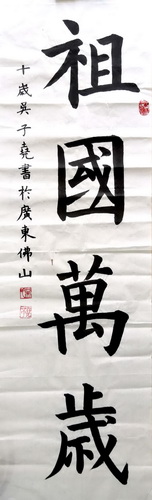 祖國萬歲
十歲吳子堯書於廣東佛山